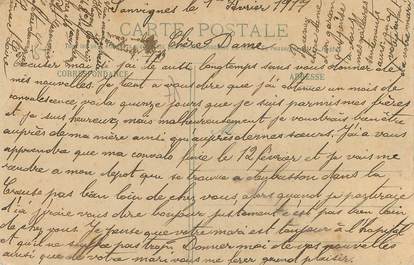 Sanvignes le 1er Février 1917
CARTE POSTALE
Chère Dame
CORRESPONDANCE
ADRESSE
Excuser moi si j'ai restté longtemps sans vous donner de
mes nouvelles. Je tient a vous dire que j'ai obtenue un mois de
convalescence, voila quinze jours que je suis parmis mes frères
et je suis heureux, mais malheureusement je voudrais bien être
auprès de ma mère ainsi qu'auprès de mes sœurs. J'ai a vous
apprendre que ma convalo finie le 12 février et je vais me
rendre a mon depot que se trouve a Aubusson dans la
Creuse pas bien loin de chez vous, alors quand je partirai
d'ici j'irai vous dire bonjour justement c'est pas bien loin
de chez vous. Je pense que votre mari est toujours a l'hopital
et qui ne souffre pas trop. Donner moi de vos nouvelles
ainsi que de votre mari vous me ferer grand plaisir.